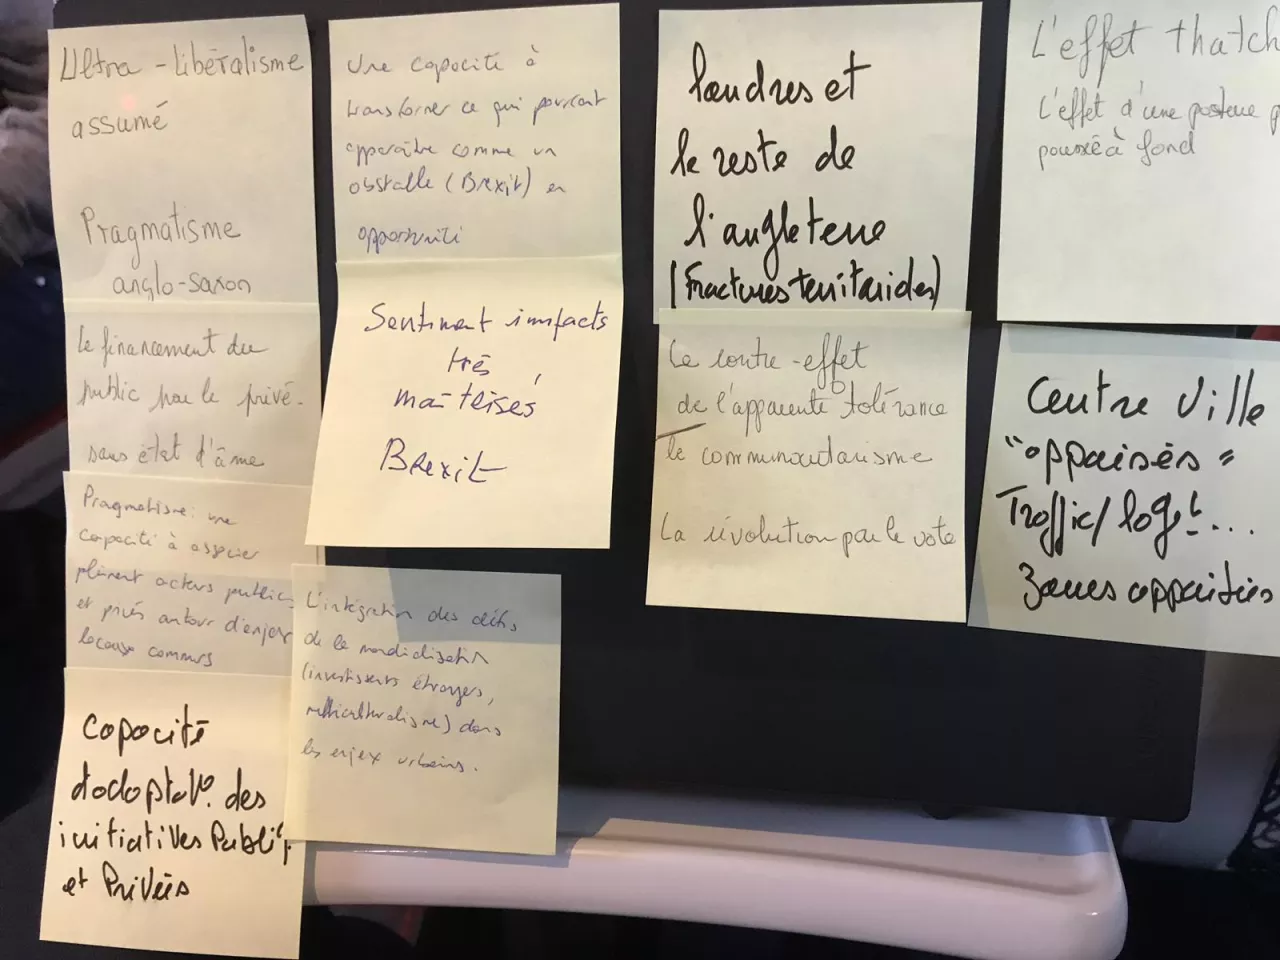 Ultra-libéralisme
assumé
Pragmatisme
anglo-saxon
Le financement du
public par le privé-
sans état d'âme
Pragmatisme: une
capacité à associer
acteurs publics
et privés autour d'enjeux
locaux communs
Capacité
d'adaptat°. des
initiatives Publiq
et Privées
Une capacité à
transformer ce qui pourrait
apparaître comme un
obstacle (Brexit) en
opportunité
Sentiment impacts
très
maîtrisés
Brexit
L'intégration des défis
de la mondialisation
(investissents étrangers,
multiculturalisme) dans
les enjeux urbains.
Londres et
le reste de
l'angleterre
(Fractures territoriales)
Le contre-effet
de l'apparente tolérance
le communautarisme
La révolution par le vote
L'effet thatch
L'effet d'une posture p
poussée à fond
Centre Ville
"appaisés"
Traffic/logt...
Zones appaisées